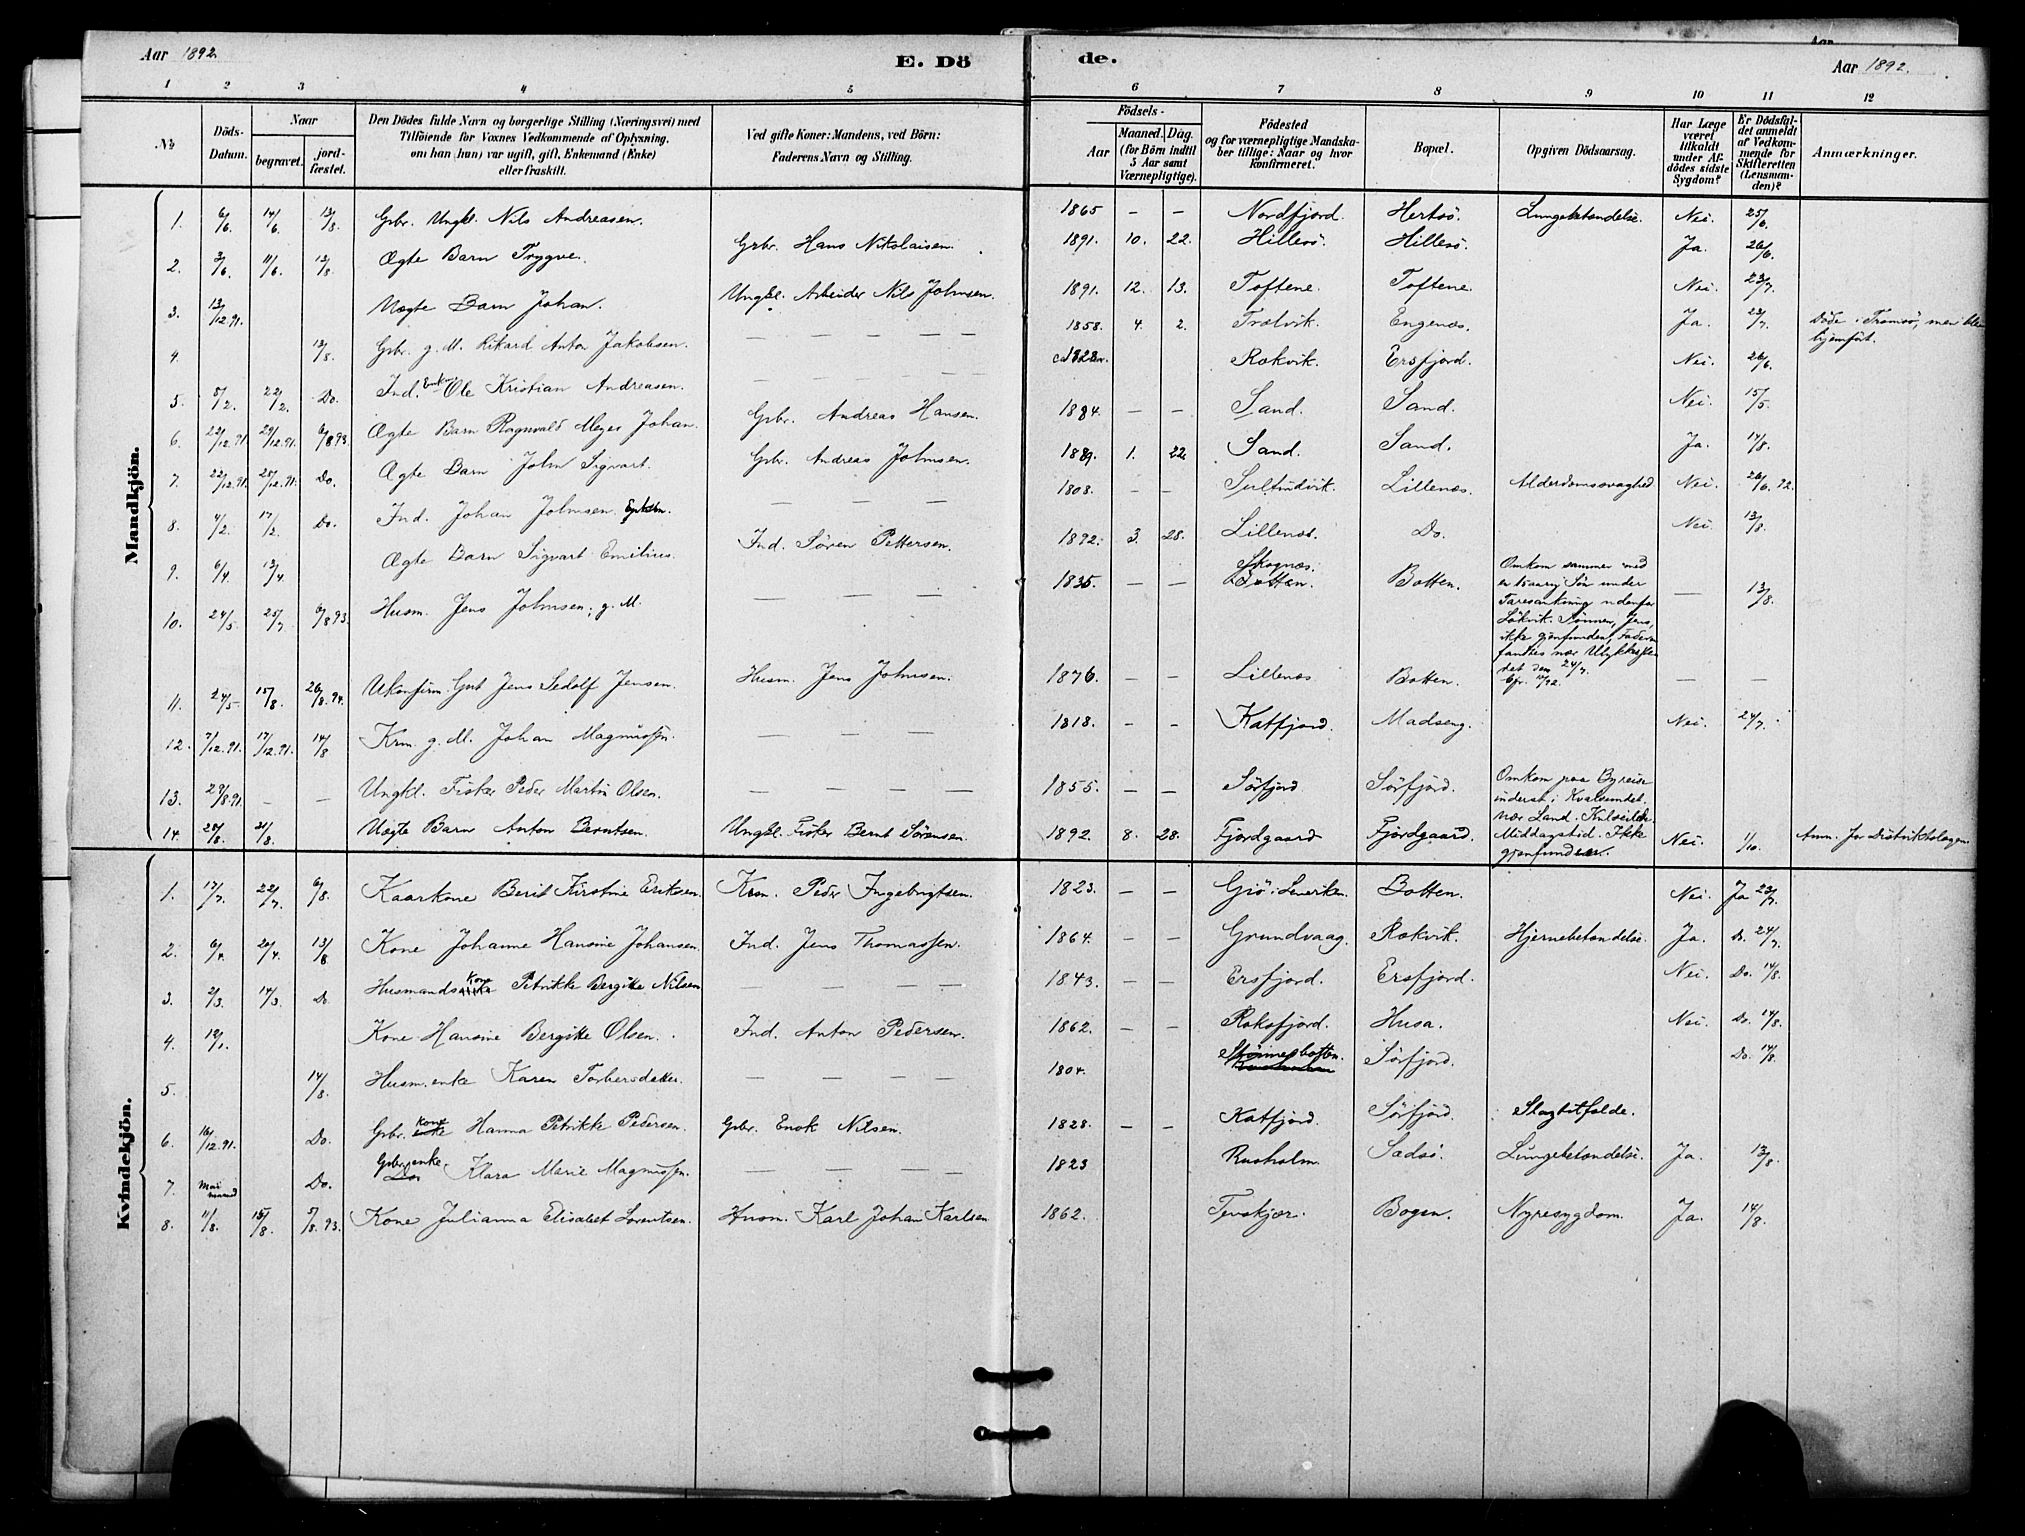 Aar 1892.
E. Dö de.
Aar 1892.
1 2 3 4 5 6 7 8 9 10 11 12
№
Döds-Datum.
Naar
begravet.
jord-fæstet.
Den Dödes fulde Navn og borgerlige Stilling (Næringsvei) med
Tilföiende for Voxnes Vedkommende af Oplysning,
om han (hun) var ugift, gift, Enkemand (Enke)
eller fraskilt.
Ved gifte Koner: Mandens, ved Börn:
Faderens Navn og Stilling.
Födsels-
Aar
Maaned. Dag.
(for Börn indtil
5 Aar samt
Værnepligtige).
Födested
og for værnepligtige Mandska-
ber tillige: Naar og hvor
konfirmeret.
Bopæl.
Opgiven Dödsaarsag.
Har Læge
været
tilkaldt
under Af-
dödes sidste
Sygdom?
Er Dödsfal-
det anmeldt
af Vedkom-
mende for
Skifteretten
(Lensman-
den)?
Anmærkninger.
Mandkjön.
1. 6/6. 14/6. 13/8. Gbr. Ungkl. Nils Andreasen. 1865 — — Nordfjord. Hertsö. Lungebetændelse. Nei. 25/6.
2. 3/6. 11/6. 13/8. Ægte Barn Trygve. Gbr. Hans Nikolaisen. 1891. 10. 22. Hillesö. Hillesö. Ja. 26/6.
3. 13/12.91. Uægte Barn Johan. Ungkl. Arbeider Nils Johnsen. 1891. 12. 13. Toftene. Toftene. Nei. 23/7.
4. 13/8. Gbr. g. M. Rikard Anton Jakobsen. — — — — 1858. 4. 2. Trælvik. Engenæs. Ja. 23/7. Döde i Tromsö, men blev
hjemført.
5. 5/2. 22/2. Do. Ind. Enkem. Ole Kristian Andreasen. — — — — 1822. Rekvik. Ersfjord. Nei. 26/6.
6. 22/12.91. 29/12.91. 6/8 93. Ægte Barn Ragnvald Meyer Johan. Gbr. Andreas Hansen. 1884. — — Sand. Sand. Nei. 15/5.
7. 22/12.91. 25/12.91. Do. Ægte Barn John Sigvart. Gbr. Andreas Johnsen. 1889. 1. 22. Sand. Sand. Ja. 14/8.
8. 4/2. 17/2. Do. Ind. Johan Johnsen — — — 1808. — — Sultindvik. Lillenæs. Alderdomssvaghed Nei. 26/6.92.
9. 6/4. 13/4. Ægte Barn Sigvart Emilius. Ind. Sören Pettersen. 1892. 3. 28. Lillenæs. Do. Nei. 13/8.
10. 24/5. 25/7. 6/8 93. Husm. Jens Johnsen; g. M. — — — 1835. — — Skognæs. Botten. Botten. Omkom sammen med
Søn under
udenfor
Sønnen, Jens,
ikke gjenfunden, Faderen
fandtes nær
det den 24/7. — 13/8.
11. 24/5. 15/8. 26/8.94. Ukonfirm. Gut Jens Sedolf Jensen. Husm. Jens Johnsen. 1876. — — Lillenæs Botten. — —
12. 7/12.91. 17/12.91. 14/8 Krm. g. M. Johan Magnussen. — — — — 1818. — — Katfjord. Madseng. Nei. 24/7.
13. 29/8.91. — — Ungkl. Fisker Peder Martin Olsen. — — — — 1855. — — Sörfjord Sörfjord. Omkom paa Byreise
inderst i Kvalsundet
nær Land.
Middagstid. Ikke
gjenfunden.
14. 28/8. 31/8. Uægte Barn Anton Berntsen. Ungkl. Fisker Bernt Sörensen. 1892. 8. 28. Fjordgaard Fjordgaard. Nei. 1/10. Anm. for Distriktslægen.
Kvindekjön.
1. 17/7. 22/7. 6/8. Kaarkone Berit Kirstine Eriksen. Krm. Peder Ingebrigtsen. 1823. — — Giö i Lenviken. Botten. Nei. Ja 23/7.
2. 6/4. 20/4. 13/8 Kone Johanne Hansine Johansen. Ind. Jens Thomassen. 1864. — — Grundvaag. Rekvik. Hjernebetændelse. Ja. Do. 24/7.
3. 2/3. 14/3. Do Husmands Kone Petrikke Bergitte Nilsen — — — — 1843. — — Ersfjord. Ersfjord. Nei. Do. 14/8.
4. 12/1. Kone Hansine Bergitte Olsen. Ind. Anton Pedersen. 1862. — — Roksfjord. Husa. Nei. Do. 14/8.
5. 14/8. Husm. enke Karen Torbersdatter. — — — — 1804. Strömesbotten. Sörfjord. Do. 14/8.
6. 16/12.91. Do. Gbr. Kone Hanna Petrikke Pedersen. Gbr. Enok Nilsen. 1828. — — Katfjord. Sörfjord. Slagtilfælde.
7. Mai maaned Do. Gbr. enke. Klara Marie Magnussen. — — — — 1823 Rusholm. Sædsö. Lungebetændelse. Ja. 13/8.
8. 11/8. 15/8. 5/8.93. Kone Julianna Elisabet Lorentsen. Husm. Karl Johan Karlsen. 1862. Tenskjær. Bogen. Nyresygdom. Ja. 14/8.